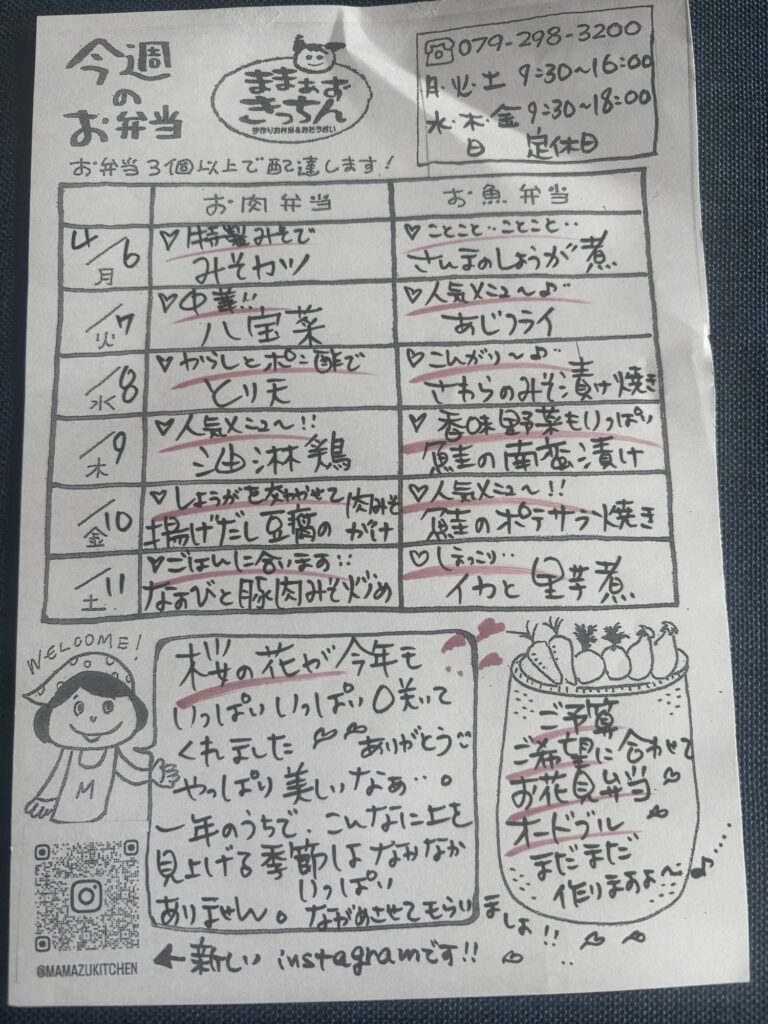 今週
の
お弁当
ままぁず
きっちん
手作りお弁当&おそうざい
☎079-298-3200
月・火・土 9:30~16:00
水・木・金 9:30~18:00
日 定休日
お弁当3個以上で配達します!
お肉弁当 お魚弁当
4/6 月
♡特製みそで
みそカツ
♡ことこと‥ことこと‥
さんまのしょうが煮
/7 火
♡中華!!
八宝菜
♡人気メニュー♪
あじフライ
/8 水
♡からしとポン酢で
とり天
♡こんがり~♪
さわらのみそ漬け焼き
/9 木
♡人気メニュ~!!
油淋鶏
♡香味野菜もいっぱい
鮭の南蛮漬け
/10 金
♡しょうがをきかせて
揚げだし豆腐の肉みそがけ
♡人気メニュ~!!
鮭のポテサラ焼き
/11 土
♡ごはんに合います‥
なすびと豚肉みそ炒め
♡しっこり‥
イカと里芋煮
WELCOME!
M
桜の花が今年も
いっぱいいっぱい咲いて
くれました ありがとう
やっぱり美しいなぁ‥。
一年のうちで、こんなに上を
見上げる季節はなかなか
ありません。いっぱい
ながめさせてもらいましょ!!
ご予算
ご希望に合わせて
お花見弁当
オードブル
まだまだ
作りますよ~♪
@MAMAZUKITCHEN
←新しい instagramです!!